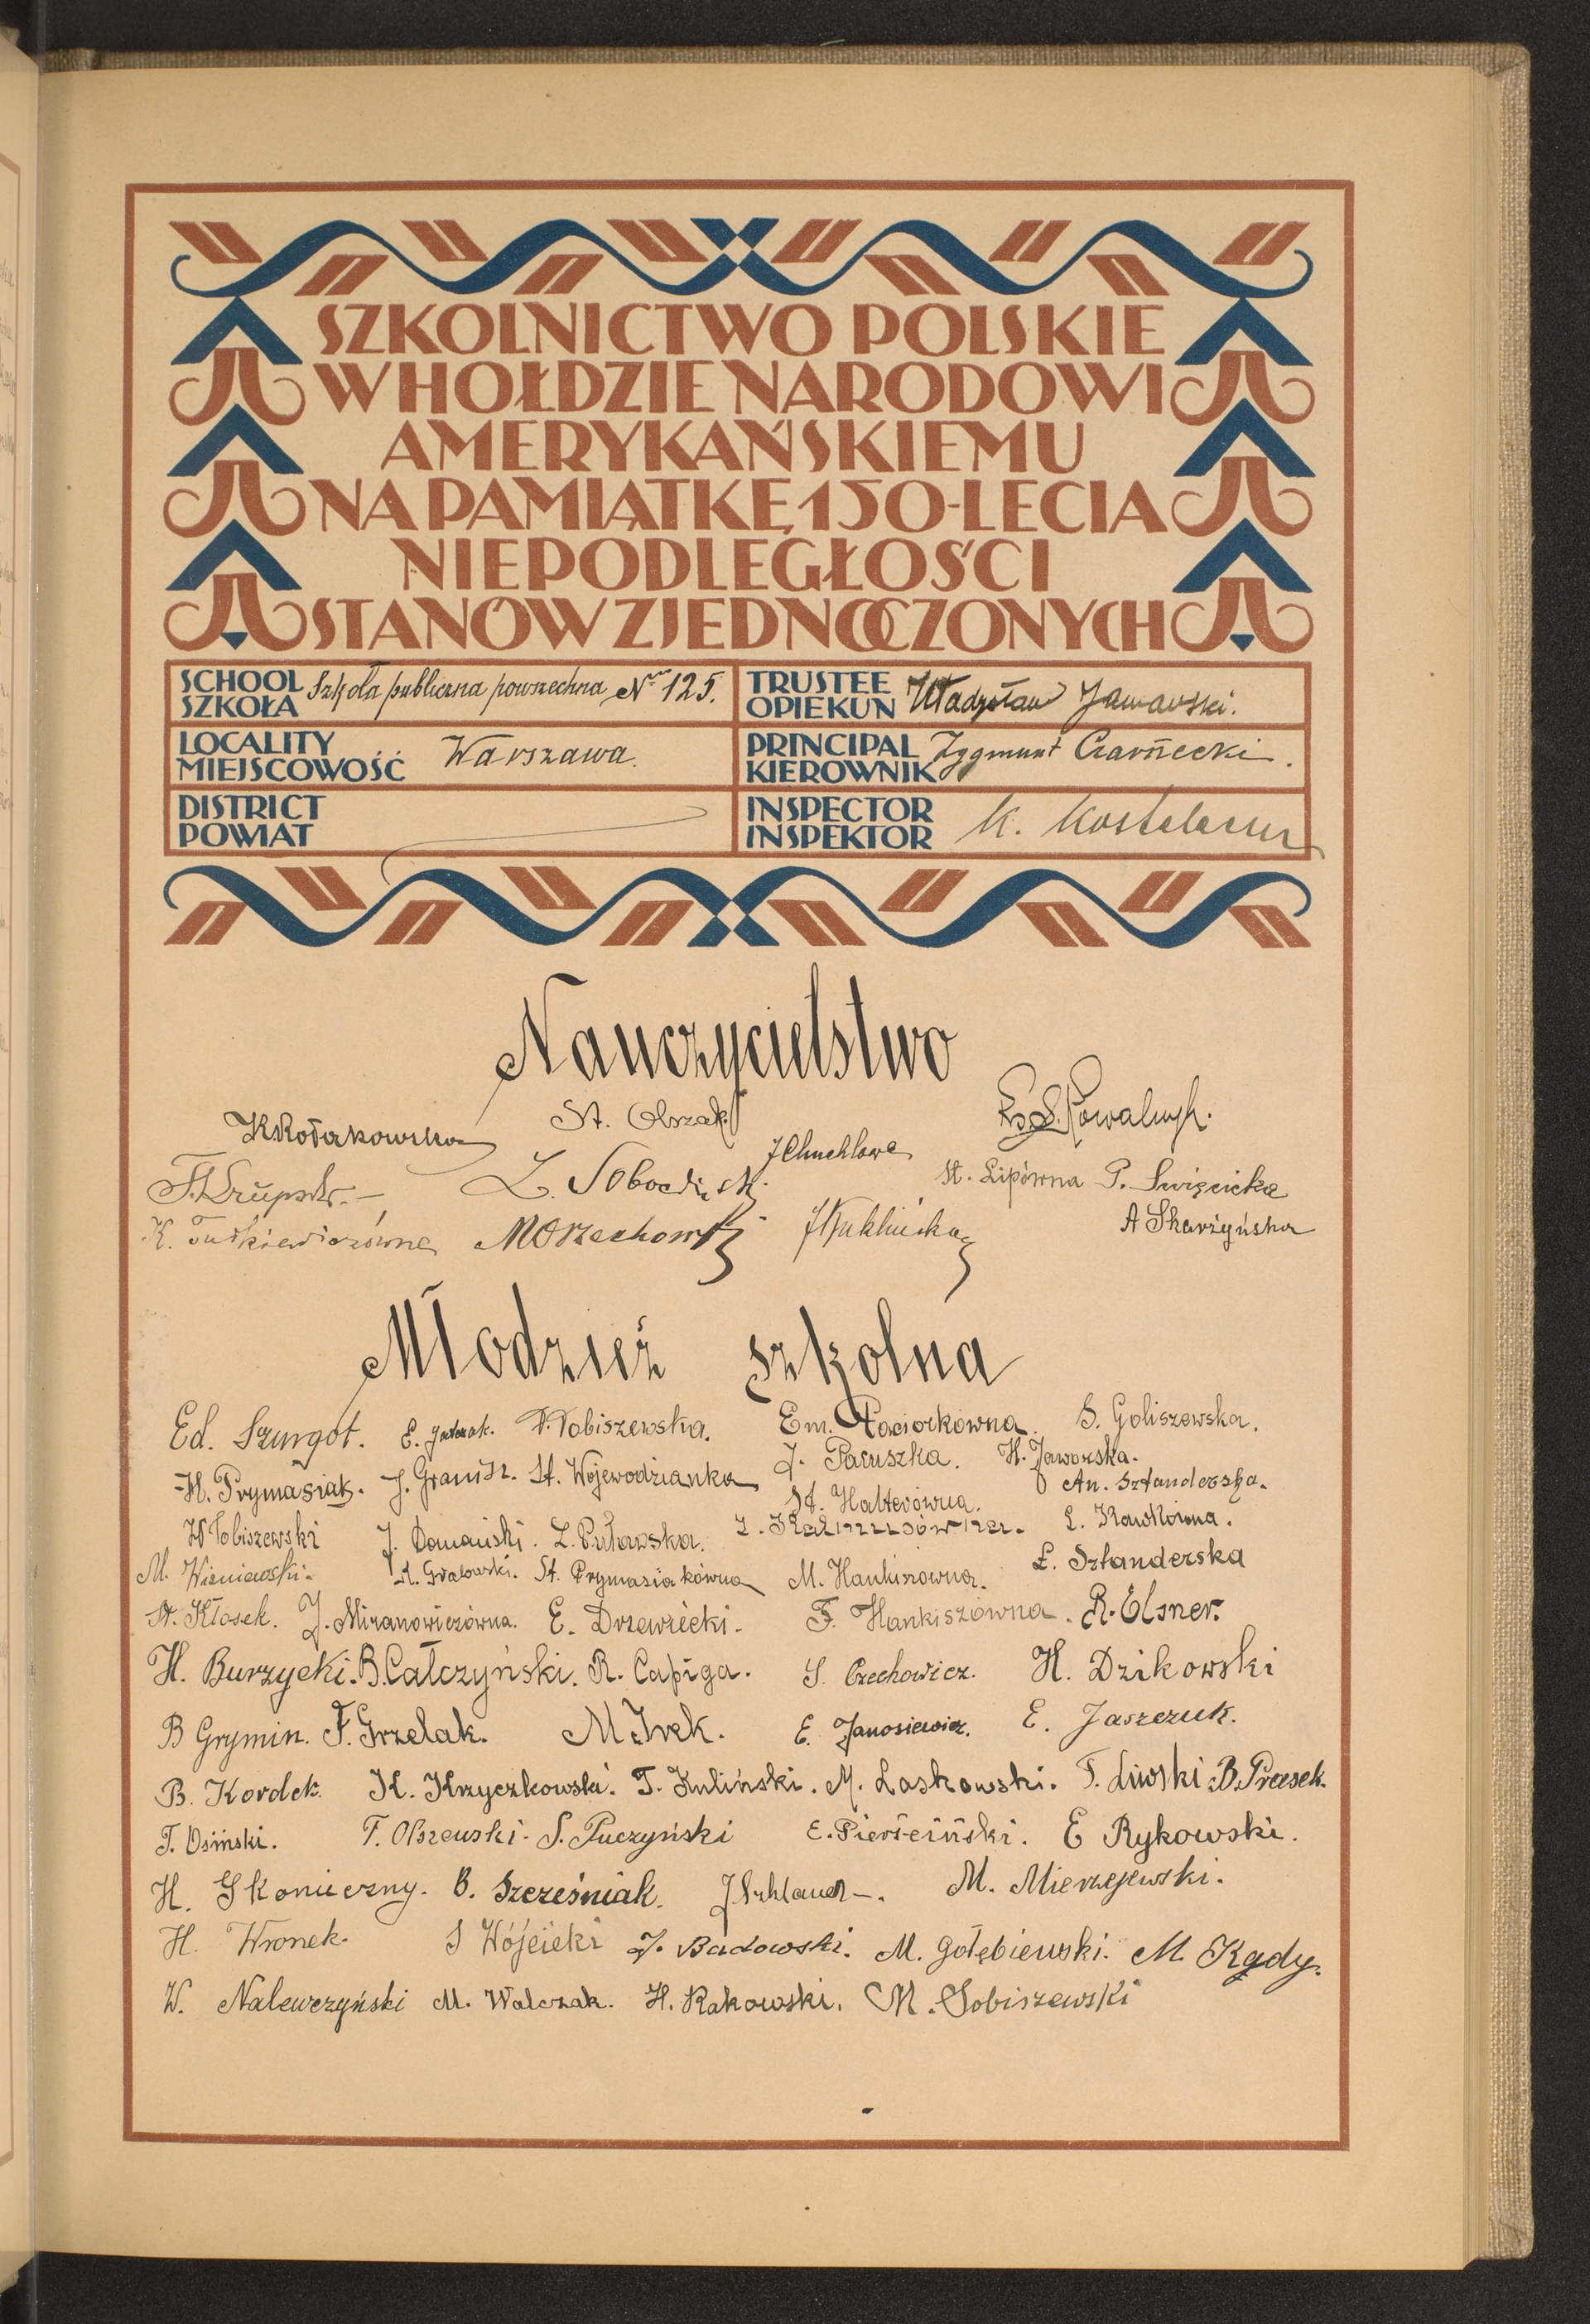 SZKOLNICTWO POLSKIE
W HOŁDZIE NARODOWI
AMERYKAŃSKIEMU
NA PAMIĄTKĘ 150-LECIA
NIEPODLEGŁOŚCI
STANÓW ZJEDNOCZONYCH
SCHOOL SZKOŁA Szkoła publiczna powszechna Nr 125.
TRUSTEE OPIEKUN Władysław Jaworski.
LOCALITY MIEJSCOWOŚĆ Warszawa.
PRINCIPAL KIEROWNIK Zygmunt Czarnecki.
DISTRICT POWIAT
INSPECTOR INSPEKTOR K.
Nauczycielstwo
K. Kołakowska St. Olszak
J. Chuchlowa
Z. Sobociński St. Lipówna P. Święcicka
K. Tutkiewiczówna M Orzechowski J Kuklińska A Skarżyńska
Młodzież szkolna
Ed. Szurgot. E. Jatczak. W. Tobiszewska. Em. Paciorkówna. S. Goliszewska.
H. Prymasiak. J. Granisz. St. Wojewodzianka J. Pacuszka. H. Jaworska.
St. Halterówna. An. Sztanderska.
W Tobiszewski J. Domański. L. Puławska. L. Kawkówna.
M. Wiśniewski. K. Grałowski. St. Prymasiakówna M. Hankiszówna. E. Sztanderska
St. Kłosek. J. Miranowiczówna. E. Drzewiecki. F. Hankiszówna. R. Elsner.
H. Burzycki. B. Całczyński. R. Capiga. S. Czechowicz. H. Dzikowski
B Grymin. F. Grzelak. M. Irek. E. Janosiewicz. E. Jaszczuk.
B. Kordek. K. Krzyczkowski. T. Kuliński. M. Laskowski. T. Liwski. B. Prasek.
T. Osiński. T. Olszewski. S. Puczyński E. Pierściński. E Rykowski.
H. Skonieczny. B. Szcześniak. M. Mierzejewski.
H. Wronek. S Wójcicki J. Badowski. M. Gołębiewski. M. Kądy.
W. Nalewczyński M. Walczak. H. Rakowski. M. Sobiszewski